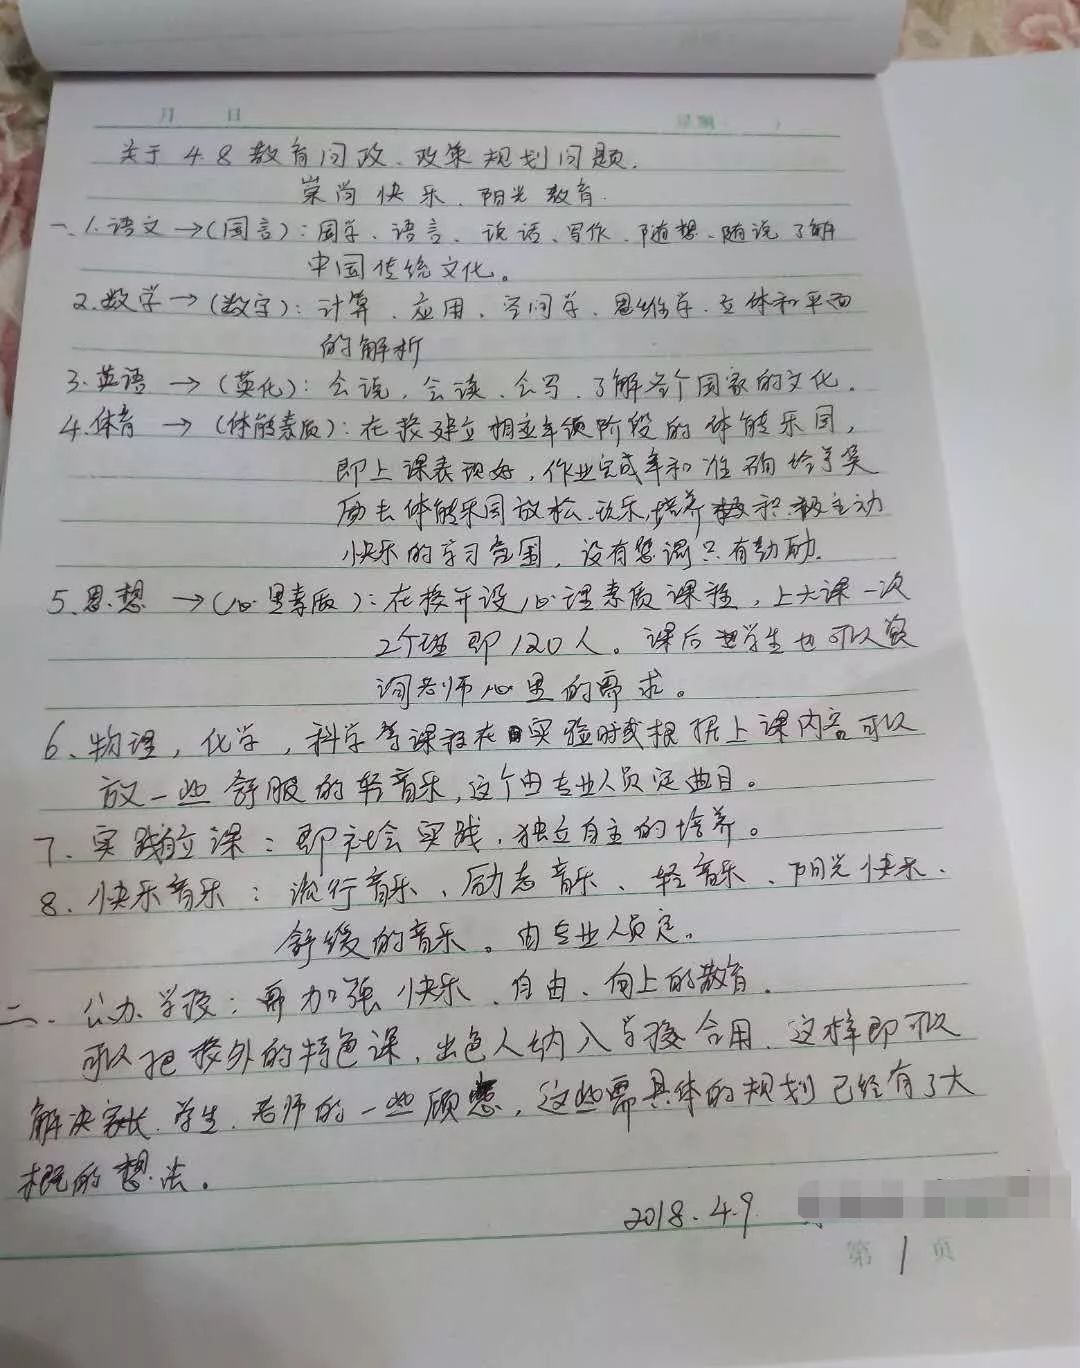 月 日 星期
关于4.8教育问政、政策规划问题.
崇尚快乐、阳光教育.
一、1.语文→(国言):国学、语言、说话、写作、随想、随说了解
中国传统文化。
2.数学→(数字):计算、应用、空间学、思维学、立体和平面
的解析
3.英语→(英化):会说,会读、会写、了解各个国家的文化.
4.体育→(体能素质):在校建立相应年级阶段的体能乐园,
即上课表现好,作业完成率和准确给予奖
励去体能乐园放松、玩乐,培养积极主动
快乐的学习氛围,没有怒谓只有勉励.
5.思想→(心里素质):在校开设心理素质课程,上大课一次
2个班即120人。课后学生也可以咨
询老师心里的需求。
6、物理,化学,科学等课程在实验时或根据上课内容可以
放一些舒服的轻音乐,这个由专业人员定曲目。
7、实践课:即社会实践,独立自主的培养。
8、快乐音乐:流行音乐、励志音乐、轻音乐、阳光快乐、
舒缓的音乐。由专业人员定。
二、公办学校:再加强快乐、自由、向上的教育.
可以把校外的特色课,出色人纳入学校合用、这样即可以
解决家长、学生、老师的一些顾虑,这些需具体的规划已经有了大
概的想法。
2018.4.9
第1页